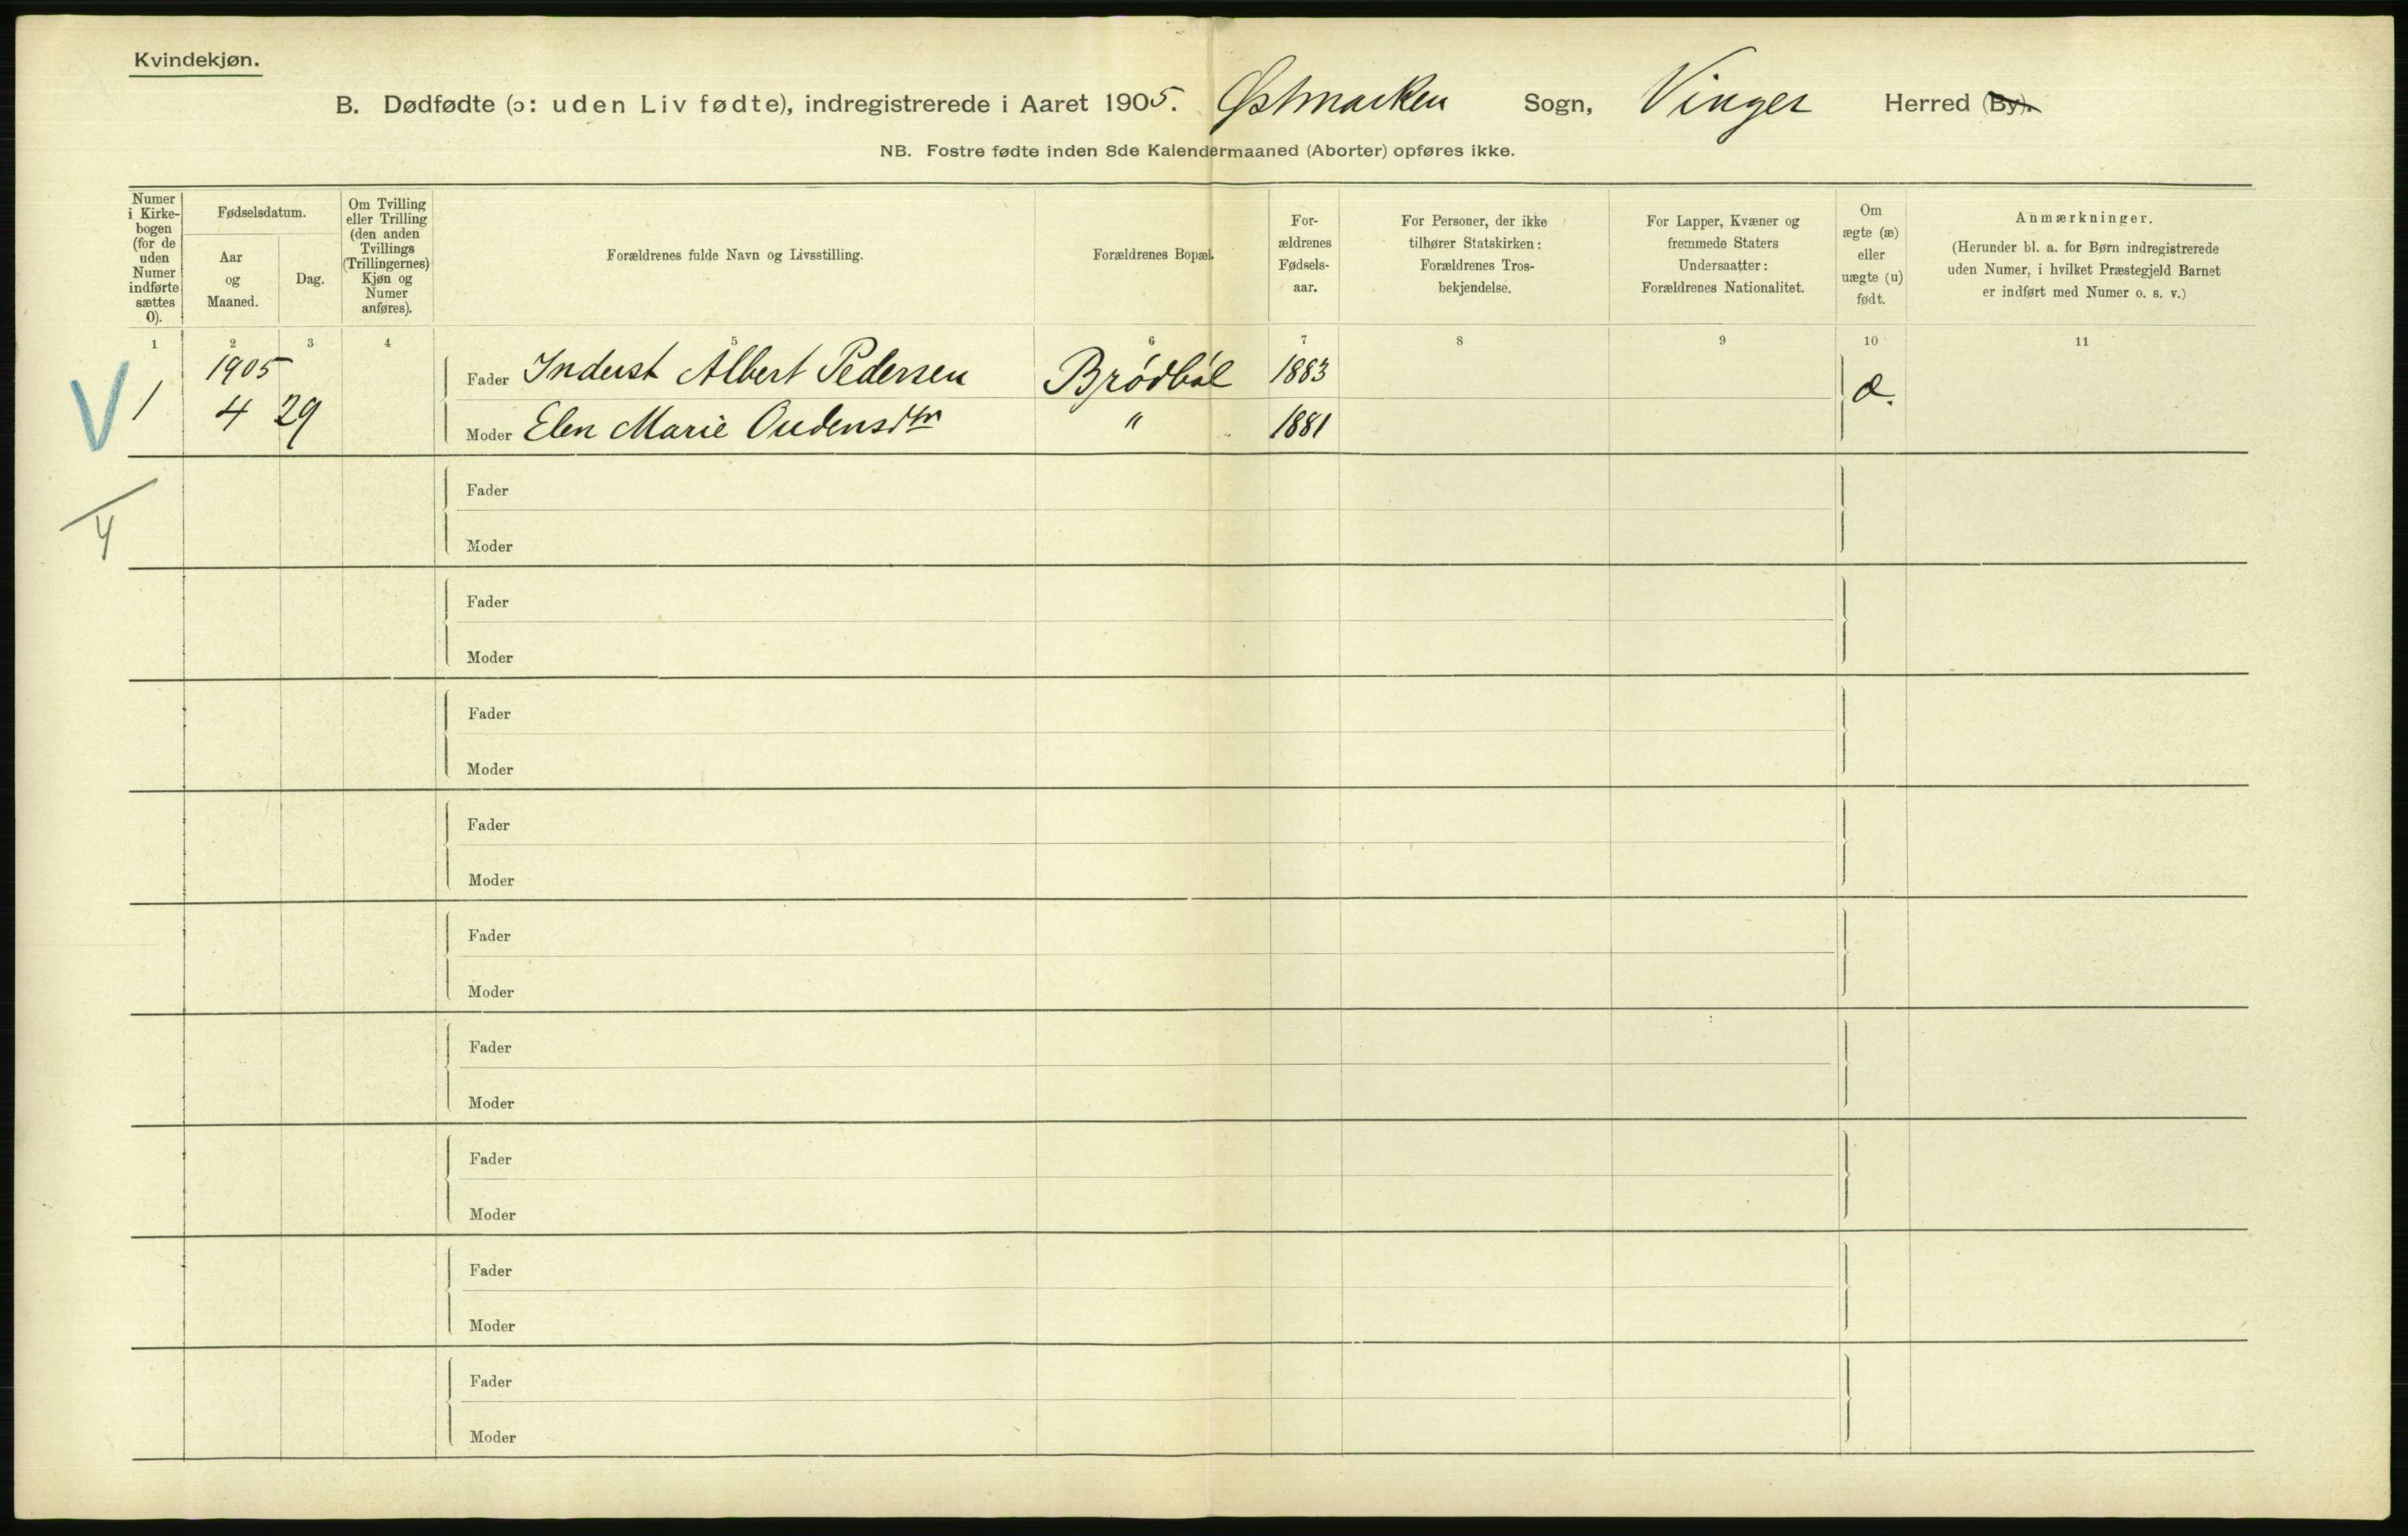 Kvindekjøn.
B. Dødfødte (ɔ: uden Liv fødte), indregistrerede i Aaret 1905. Østmarken Sogn, Vinger Herred (By).
NB. Fostre fødte inden 8de Kalendermaaned (Aborter) opføres ikke.
Numer i Kirke-bogen (for de uden Numer indførte sættes 0).
Fødselsdatum.
Aar og Maaned.
Dag.
Om Tvilling eller Trilling (den anden Tvillings (Trillingernes) Kjøn og Numer anføres).
Forældrenes fulde Navn og Livsstilling.
Forældrenes Bopæl.
For-ældrenes Fødsels-aar.
For Personer, der ikke tilhører Statskirken: Forældrenes Tros-bekjendelse.
For Lapper, Kvæner og fremmede Staters Undersaatter: Forældrenes Nationalitet.
Om ægte (æ) eller uægte (u) født.
Anmærkninger.
(Herunder bl. a. for Børn indregistrerede uden Numer, i hvilket Præstegjeld Barnet er indført med Numer o. s. v.)
1 2 3 4 5 6 7 8 9 10 11
V 1 1905 4 29
Fader Indust Albert Pedersen Brödböl 1883 æ.
Moder Elen Marie Oudensdtr " 1881
4
Fader
Moder
Fader
Moder
Fader
Moder
Fader
Moder
Fader
Moder
Fader
Moder
Fader
Moder
Fader
Moder
Fader
Moder